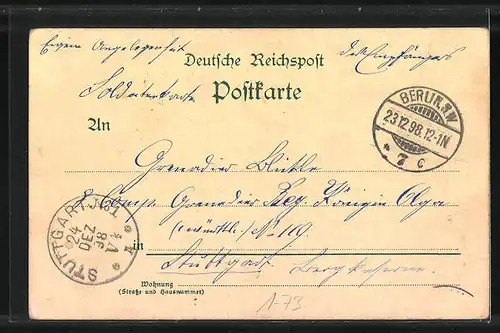 Eigene Angelegenheit des Empfängers
Deutsche Reichspost
Soldatenkarte
Postkarte
BERLIN N.W
23.12.98.12-1N.
* 7 c
An
Grenadier
Comp. Grenadier Reg. Königin Olga
(württ.) No. 119
STUTTGART
24
DEZ
98
in
Stuttgart
Bergkaserne
Wohnung
(Straße und Hausnummer)
1-73